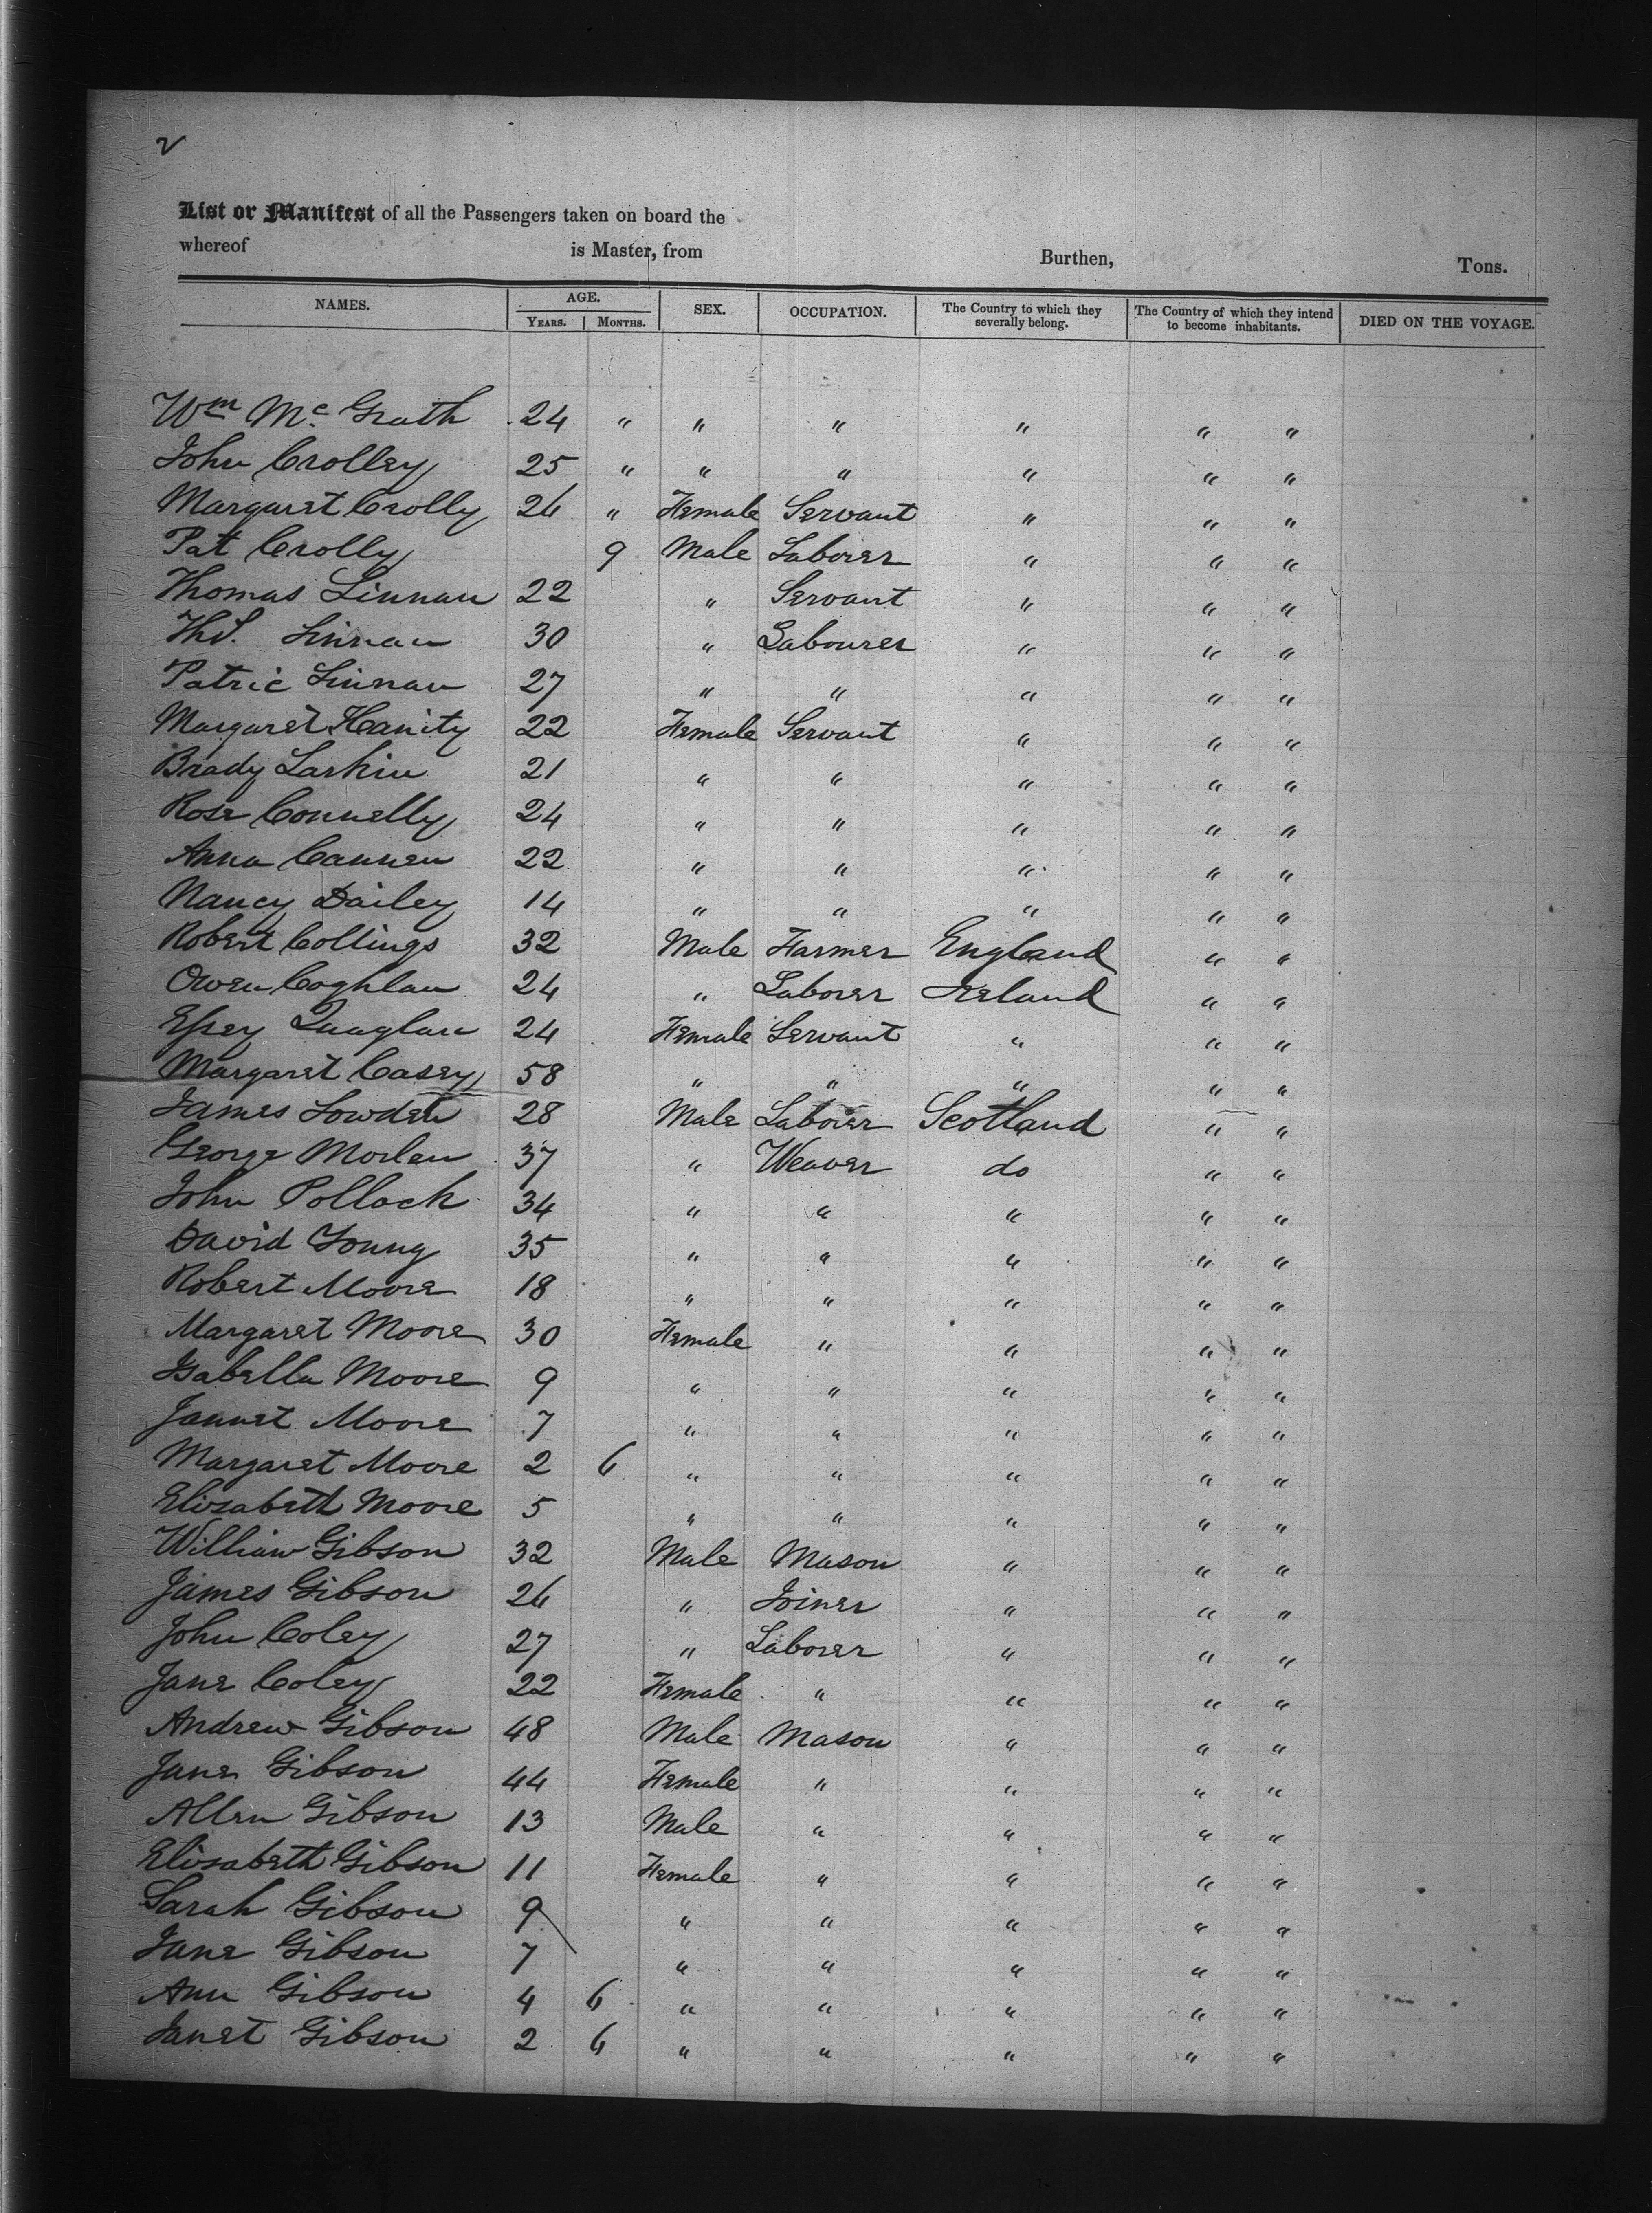 2
List or Manifest of all the Passengers taken on board the
whereof is Master, from Burthen, Tons.
NAMES. AGE. YEARS. MONTHS. SEX. OCCUPATION. The Country to which they severally belong. The Country of which they intend to become inhabitants. DIED ON THE VOYAGE.
Wm Mc Grath 24 " " " " " "
John Crolley 25 " " " " " "
Margaret Crolly 26 " Female Servant " " "
Pat Crolly 9 Male Laborer " " "
Thomas Linnan 22 " Servant " " "
Ths. Linnan 30 " Labourer " " "
Patric Linnan 27 " " " " "
Margaret Hanity 22 Female Servant " " "
Brady Larkin 21 " " " " "
Rose Connelly 24 " " " " "
Anna Cannen 22 " " " " "
Nancy Dailey 14 " " " " "
Robert Collings 32 Male Farmer England " "
Owen Coghlan 24 " Laborer Ireland " "
Essey Quaglan 24 Female Servant " " "
Margaret Casey 58 " " " " "
James Lowden 28 Male Laborer Scotland " "
George Morlen 37 " Weaver do " "
John Pollock 34 " " " " "
David Young 35 " " " " "
Robert Moore 18 " " " " "
Margaret Moore 30 Female " " " "
Isabella Moore 9 " " " " "
Jannet Moore 7 " " " " "
Margaret Moore 2 6 " " " " "
Elisabeth Moore 5 " " " " "
William Gibson 32 Male Mason " " "
James Gibson 26 " Joiner " " "
John Coley 27 " Laborer " " "
Jane Coley 22 Female " " " "
Andrew Gibson 48 Male Mason " " "
Jane Gibson 44 Female " " " "
Allen Gibson 13 Male " " " "
Elisabeth Gibson 11 Female " " " "
Sarah Gibson 9 " " " " "
Jane Gibson 7 " " " " "
Ann Gibson 4 6 " " " " "
Janet Gibson 2 6 " " " " "